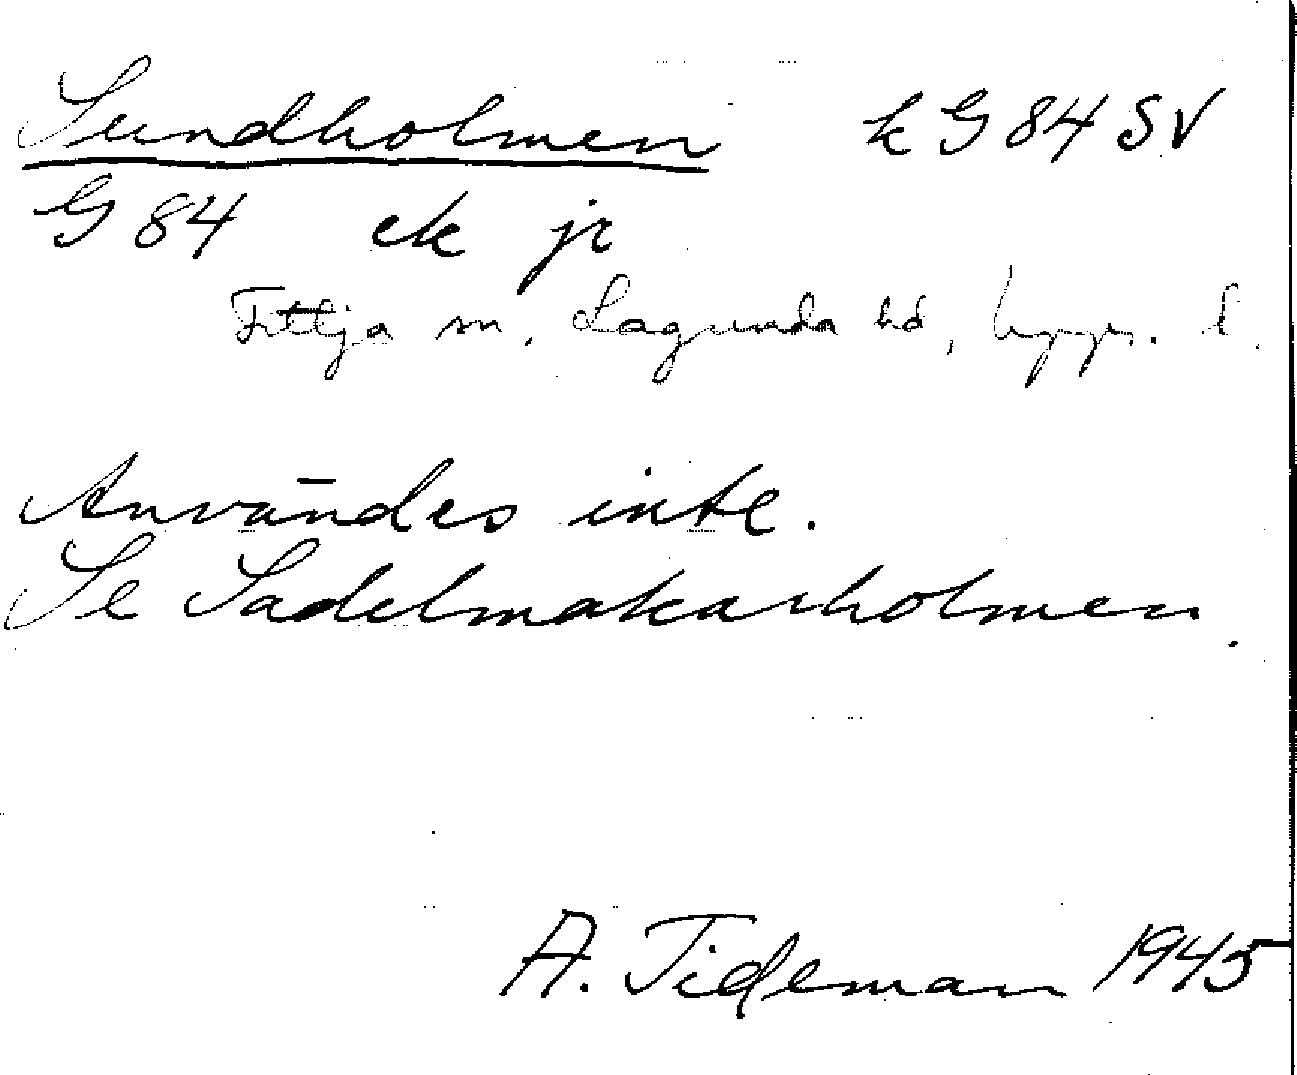 Sundholmen k G 84 SV
G 84 ek jr
Fittja sn, Lagunda hd, Uppr. l.
Användes inte.
Se Sadelmakarholmen.
A. Tideman 1945